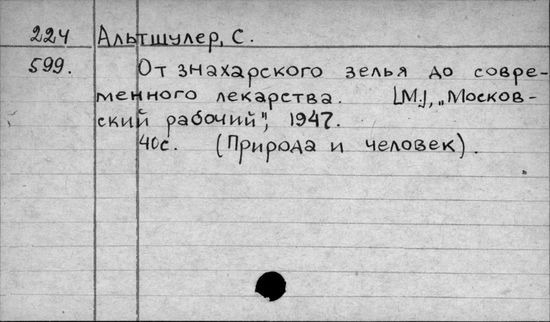 224 Альтшулер, С.
599. От знахарского зелья до совре-
менного лекарства. [М.], „Москов-
ский рабочий", 1947.
40с. (Природа и человек).